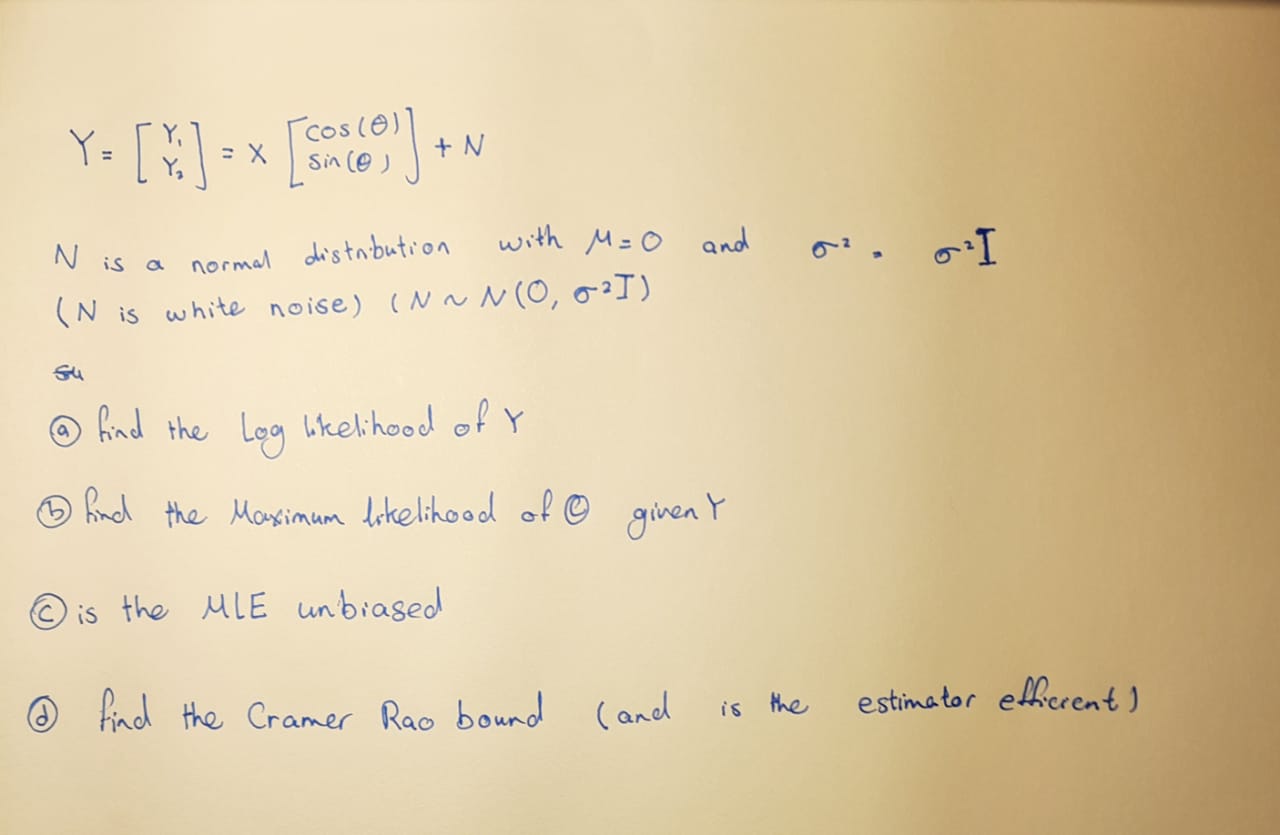 Y = [Y₁ Y₂] = x [cos(θ) sin(θ)] + N
N is a normal distribution with μ = 0 and σ² = σ²I
(N is white noise) (N ~ N(0, σ²I)
ⓐ find the Log likelihood of Y
ⓑ find the Maximum likelihood of Θ given Y
ⓒ is the MLE unbiased
ⓓ find the Cramer Rao bound (and is the estimator efficient)